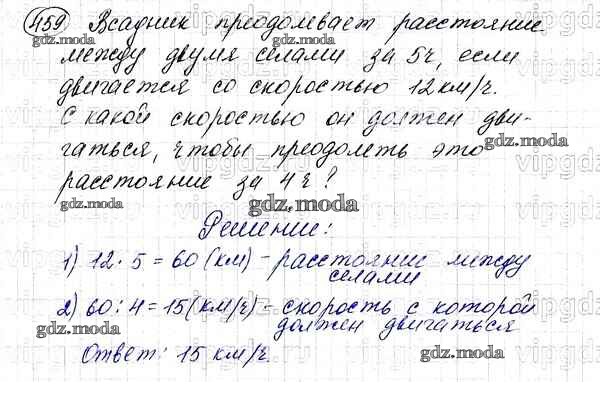 459 Всадник преодолевает расстояние
между двумя сёлами за 5ч, если
двигается со скоростью 12 км/ч.
С какой скоростью он должен дви-
гаться, чтобы преодолеть это
расстояние за 4 ч?
Решение:
1) 12 · 5 = 60 (км) - расстояние между
сёлами
2) 60 : 4 = 15 (км/ч) - скорость с которой
должен двигаться
Ответ: 15 км/ч.
gdz.moda
vipgdz